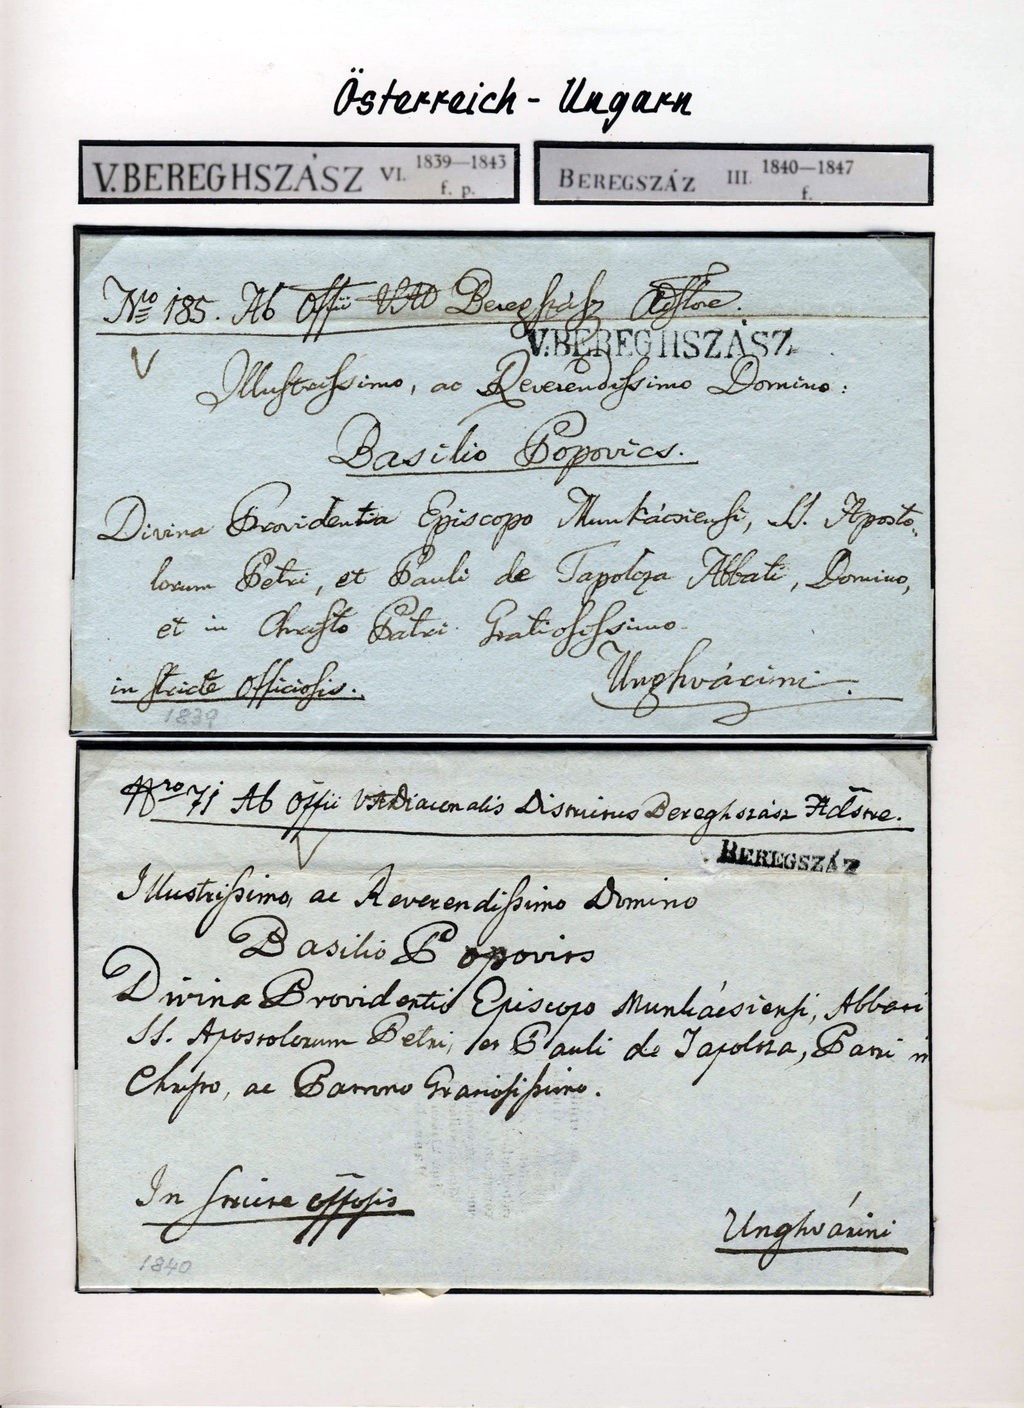 Österreich - Ungarn
V. BEREGHSZÁSZ VI. 1839—1843 f. p.
BEREGSZÁZ III. 1840—1847 f.
Nro 185. Ab Offii VAD Bereghszász
V. BEREGHSZÁSZ
Illustrissimo, ac Reverendissimo Domino:
Basilio Popovics.
Divina Providentia Episcopo Munkácsiensi, SS. Aposto-
lorum Petri, et Pauli de Tapolcza Abbati, Domino,
et in Christo Patri Gratiosissimo
Unghvárini.
in stricte Officiosis.
1839
Nro 71 Ab Offii VADiaconalis Districtus Bereghszász
BEREGSZÁZ
Illustrissimo, ac Reverendissimo Domino
Basilio Popovics
Divina Providentia Episcopo Munkácsiensi, Abbati
SS. Apostolorum Petri, et Pauli de Tapolcza, Patri in
Christo, ac Patrono Gratiosissimo.
In stricte offosis
Unghvárini
1840